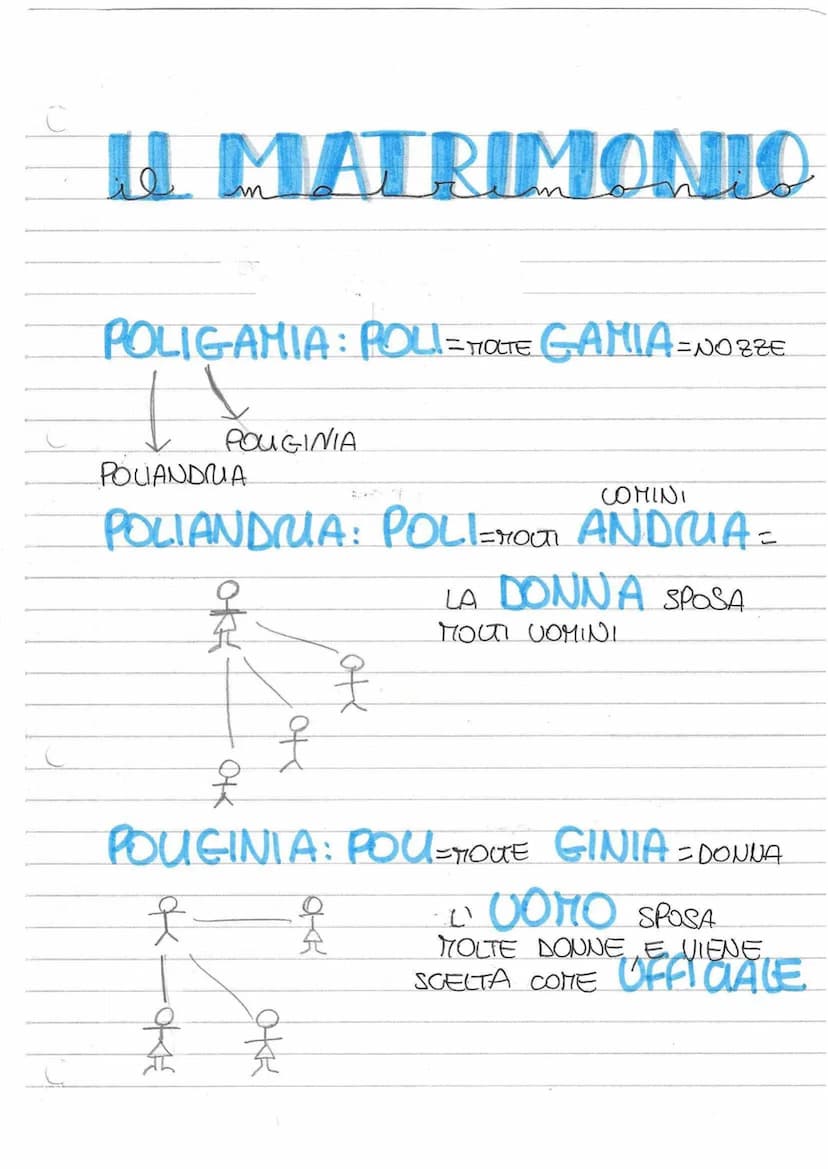 IL MATRIMONIO
il matrimonio
POLIGAMIA: POLI=MOLTE GAMIA=NOZZE
POLIGINIA
POLIANDRIA
UOMINI
POLIANDRIA: POLI=MOLTI ANDRIA=
LA DONNA SPOSA
MOLTI UOMINI
POLIGINIA: POLI=MOLTE GINIA=DONNA
L' UOMO SPOSA
MOLTE DONNE, E VIENE
SCELTA COME UFFICIALE